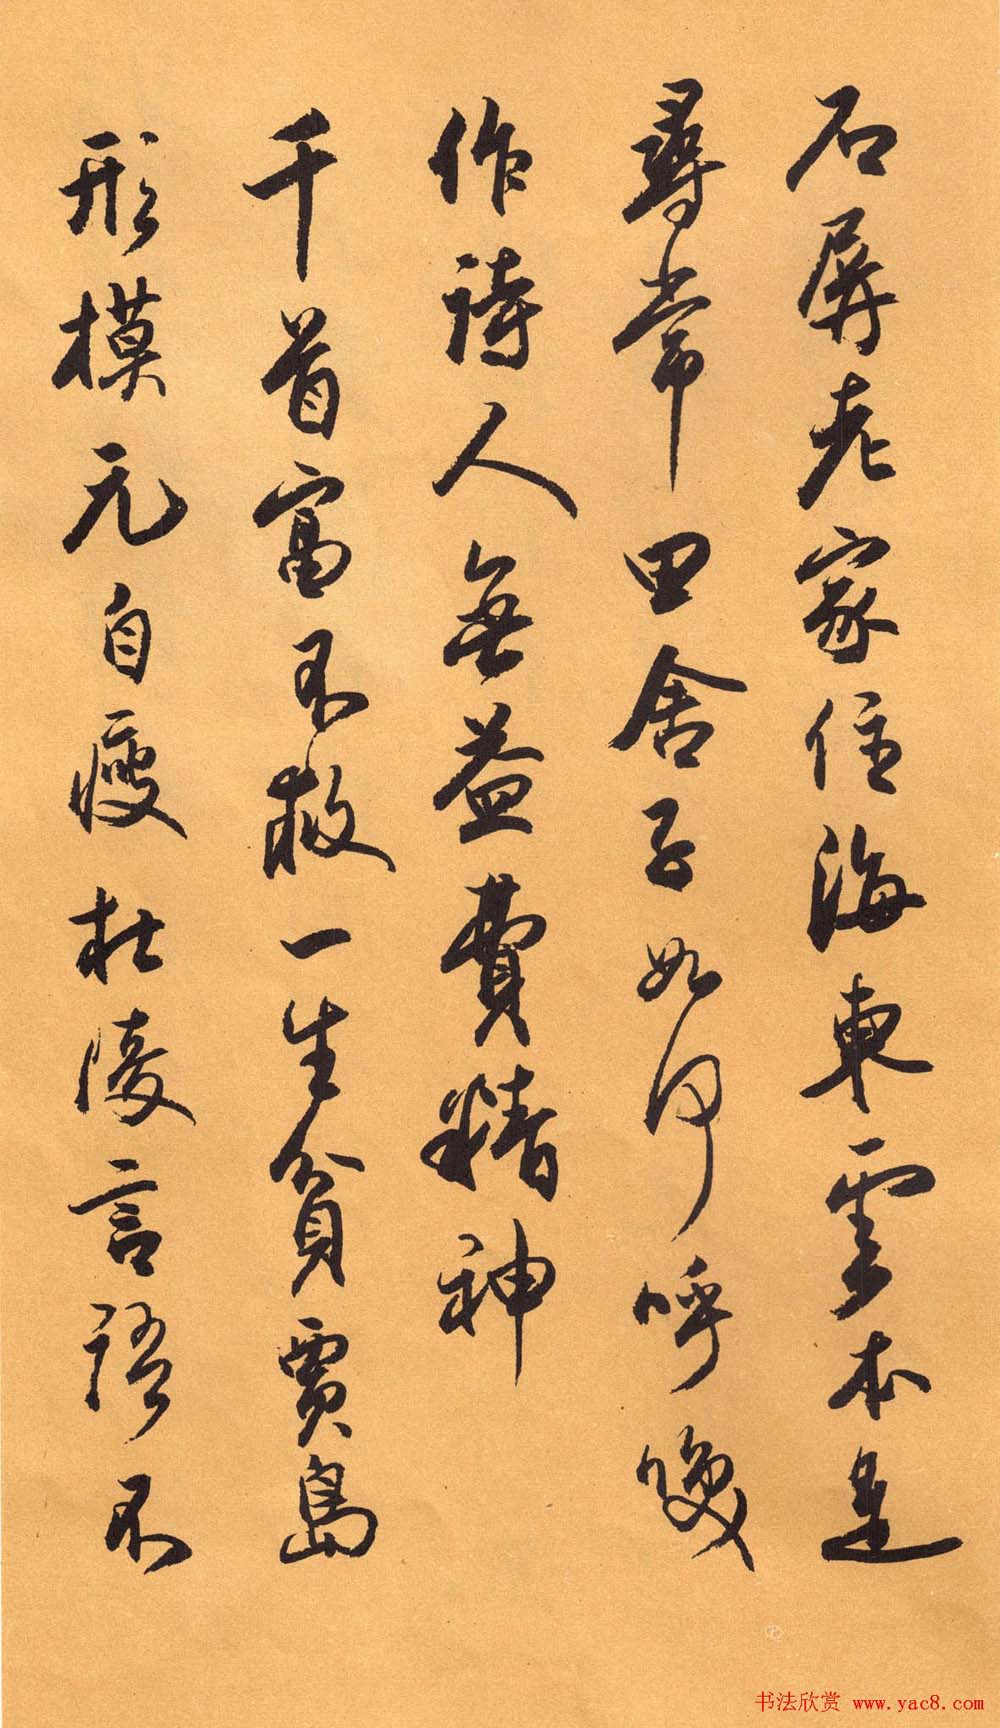 石屏老家住海東雲本是
尋常田舍子如何呼喚
作詩人無益費精神
千首富不救一生貧賈島
形模元自瘦杜陵言語不
书法欣赏 www.yac8.com